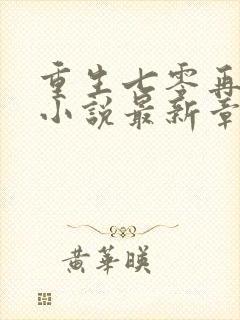 重生七零再
小説最新章
黄華暎